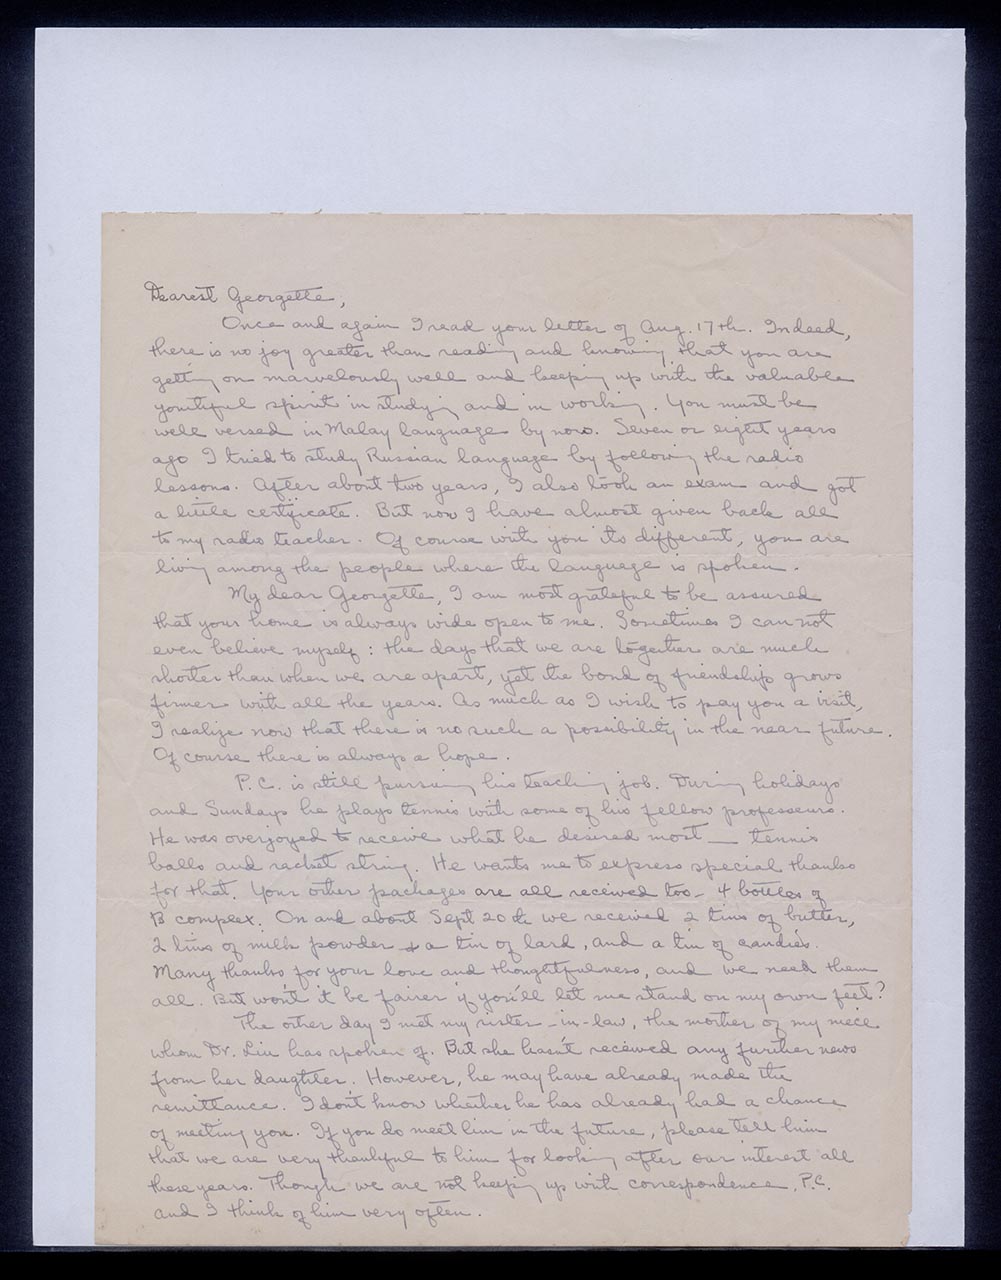 Dearest Georgette,
Once and again I read your letter of Aug. 17th. Indeed,
there is no joy greater than reading and knowing that you are
getting on marvelously well and keeping up with the valuable
youtiful spirit in studying and in working. You must be
well versed in Malay language by now. Seven or eight years
ago I tried to study Russian language by following the radio
lessons. After about two years, I also took an exam and got
a little certificate. But now I have almost given back all
to my radio teacher. Of course with you its different, you are
living among the people where the language is spoken.
My dear Georgette, I am most grateful to be assured
that your home is always wide open to me. Sometimes I can not
even believe myself: the days that we are together are much
shorter than when we are apart, yet the bond of friendship grows
firmer with all the years. As much as I wish to pay you a visit,
I realize now that there is no such a possibility in the near future.
Of course there is always a hope.
P.C. is still pursuing his teaching job. During holidays
and Sundays he plays tennis with some of his fellow professeurs.
He was overjoyed to receive what he desired most — tennis
balls and racket string. He wants me to express special thanks
for that. Your other packages are all received too - 4 bottles of
B complex. On and about Sept 20th we received 2 tins of butter,
2 tins of milk powder & a tin of lard, and a tin of candies.
Many thanks for your love and thoughtfulness, and we need them
all. But won't it be fairer if you'll let me stand on my own feet?
The other day I met my sister-in-law, the mother of my niece
whom Dr. Liu has spoken of. But she hasn't received any further news
from her daughter. However, he may have already made the
remittance. I don't know whether he has already had a chance
of meeting you. If you do meet him in the future, please tell him
that we are very thankful to him for looking after our interest all
these years. Though we are not keeping up with correspondence, P.C.
and I think of him very often.